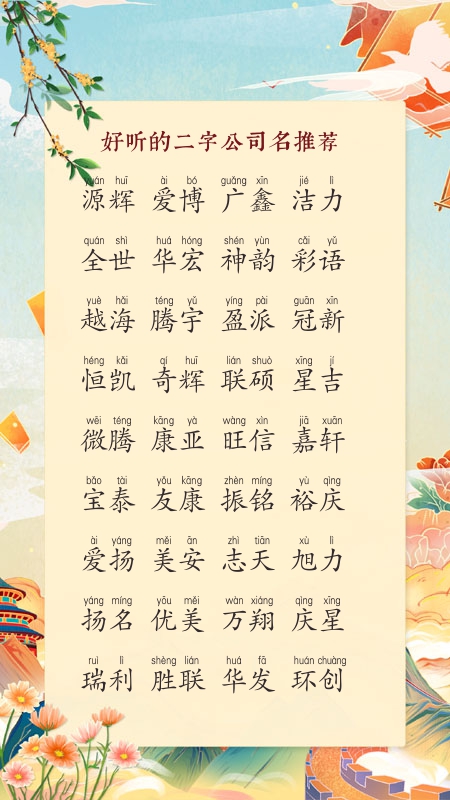 好听的二字公司名推荐
yuán huī ài bó guǎng xīn jié lì
源辉 爱博 广鑫 洁力
quán shì huá hóng shén yùn cǎi yǔ
全世 华宏 神韵 彩语
yuè hǎi téng yǔ yíng pài guān xīn
越海 腾宇 盈派 冠新
héng kǎi qí huī lián shuò xīng jí
恒凯 奇辉 联硕 星吉
wēi téng kāng yà wàng xìn jiā xuān
微腾 康亚 旺信 嘉轩
bǎo tài yǒu kāng zhèn míng yù qìng
宝泰 友康 振铭 裕庆
ài yáng měi ān zhì tiān xù lì
爱扬 美安 志天 旭力
yáng míng yōu měi wàn xiáng qìng xīng
扬名 优美 万翔 庆星
ruì lì shèng lián huá fā huán chuàng
瑞利 胜联 华发 环创